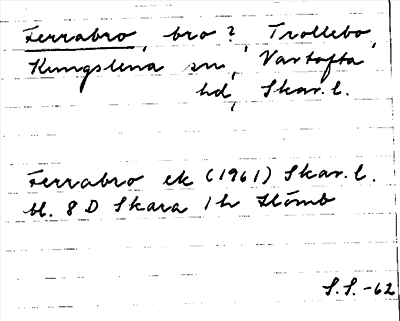 Ferrabro, bro?, Trollebo,
Kungslena sn, Vartofta
hd, Skar. l.
Ferrabro ek (1961) Skar. l.
bl. 8 D Skara 1 h Stömb
S.S. -62